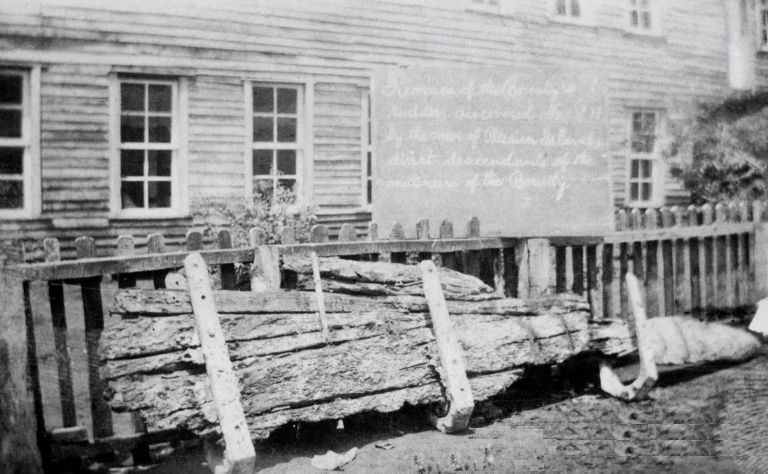 Remains of the Bounty's
rudder, discovered
by the men of Pitcairn Island,
direct descendants of the
mutineers of the Bounty